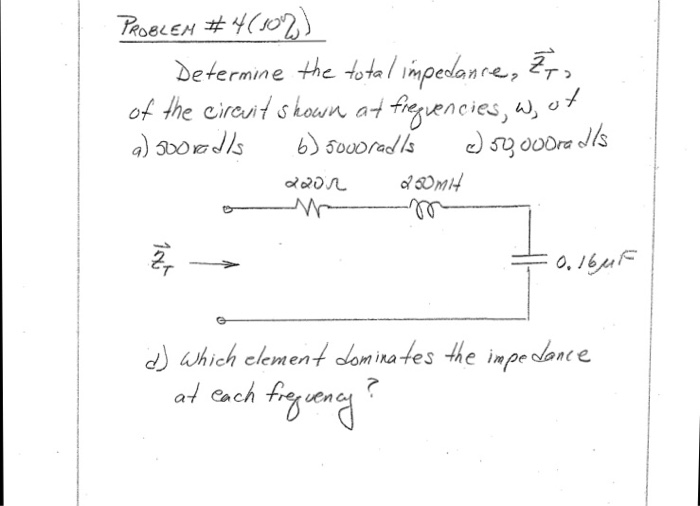 PROBLEM # 4 (10%)
Determine the total impedance, Z⃗T,
of the circuit shown at frequencies, ω, of
a) 500 rad/s b) 5000 rad/s c) 50,000 rad/s
220Ω 250mH
Z⃗T
0.16μF
d) Which element dominates the impedance
at each frequency?